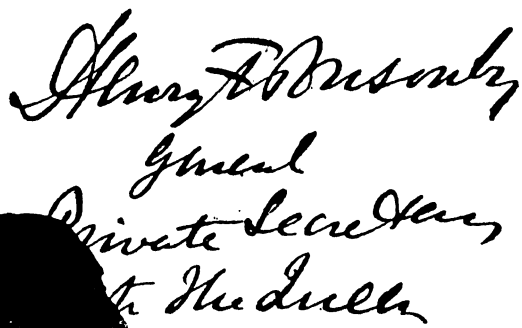 Henry F Ponsonby
General
Private Secretary
to The Queen